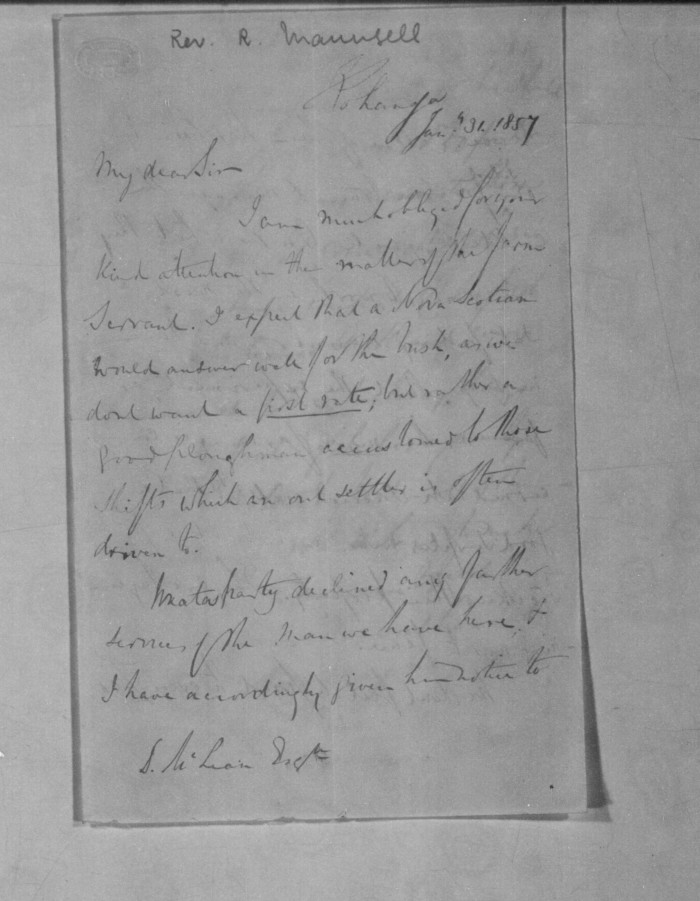 Rev. R. Maunsell
Kohanga
Jany 31, 1857
My dear Sir
I am much obliged for your
kind attention in the matter of the farm
servant. I expect that a Nova Scotian
would answer well for the bush, as we
dont want a first rate; but rather a
good ploughman accustomed to those
shifts which an out settler is often
driven to.
declined any further
services of the man we have here, &
I have accordingly given him notice to
D. McLean Esqre